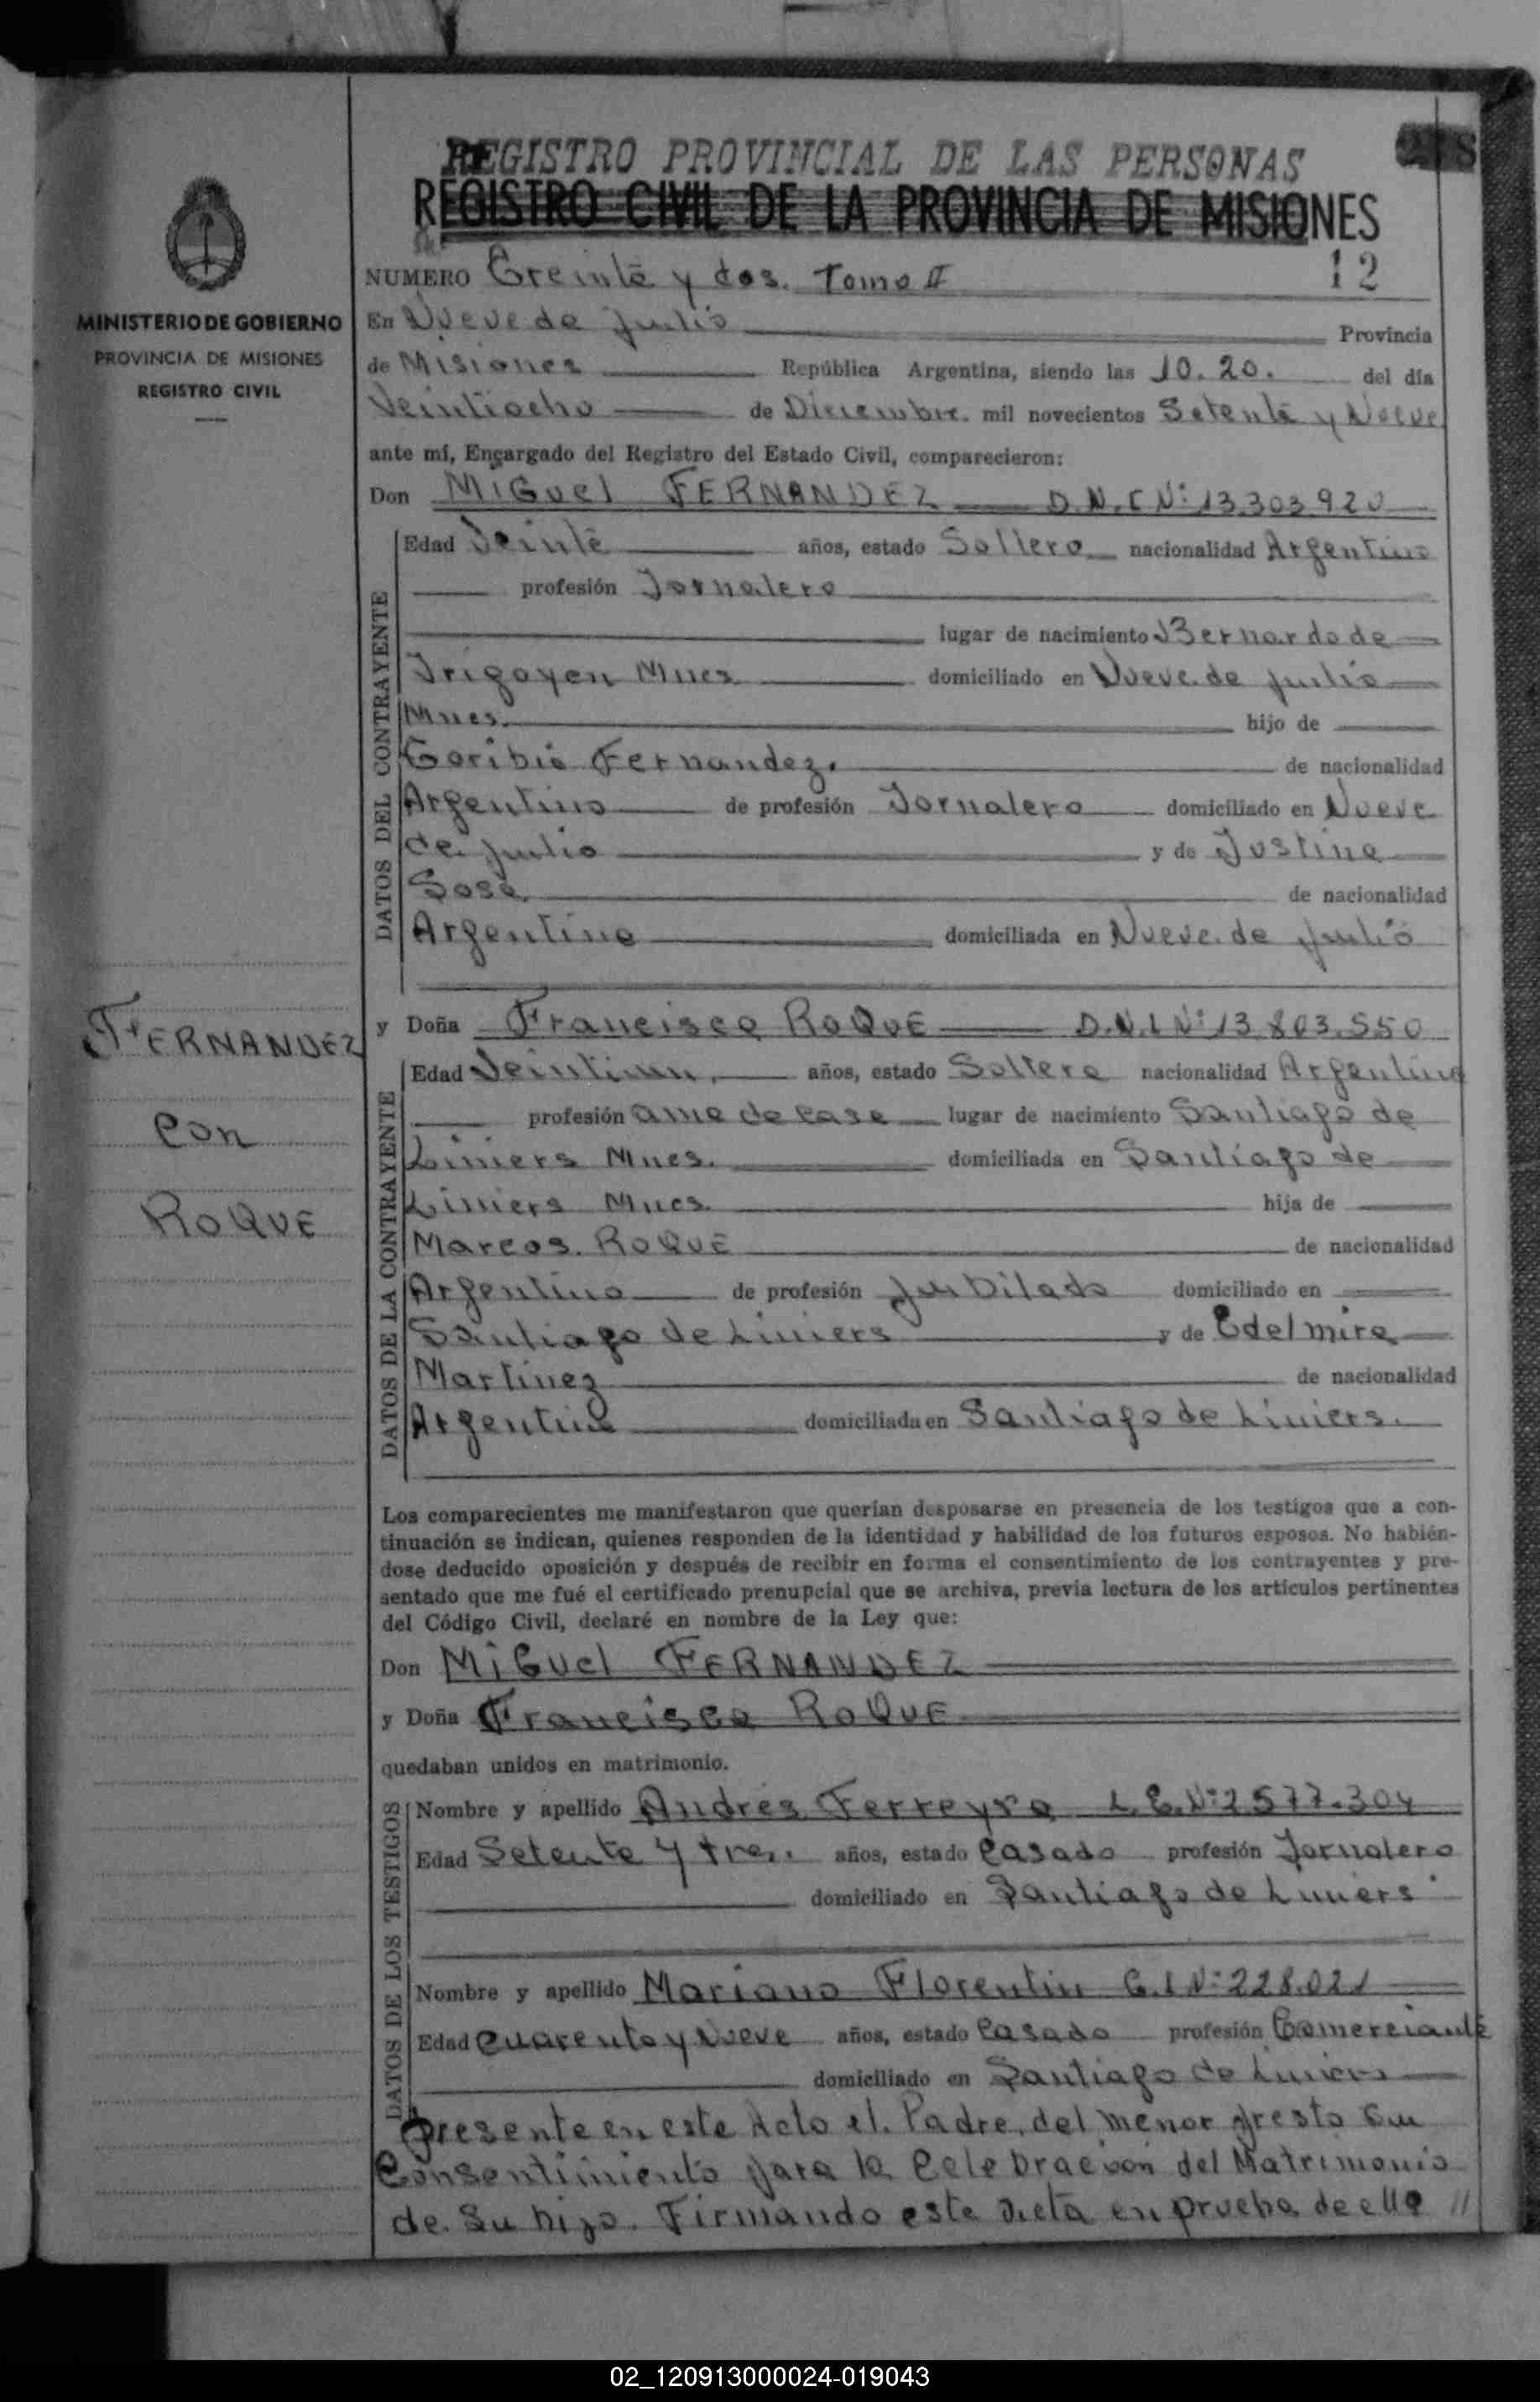 REGISTRO PROVINCIAL DE LAS PERSONAS
REGISTRO CIVIL DE LA PROVINCIA DE MISIONES
12
MINISTERIO DE GOBIERNO
PROVINCIA DE MISIONES
REGISTRO CIVIL
NUMERO Treinta y dos. Tomo II
En Nueve de Julio Provincia
de Misiones República Argentina, siendo las 10.20. del día
Veintiocho de Diciembre. mil novecientos Setenta y Nueve
ante mí, Encargado del Registro del Estado Civil, comparecieron:
Don MIGUEl FERNANDEZ D.N.I Nº 13.303.920
DATOS DEL CONTRAYENTE
Edad Veinte años, estado Soltero nacionalidad Argentino
profesión Jornalero
lugar de nacimiento Bernardo de
Irigoyen Mnes domiciliado en Nueve de Julio
Mnes. hijo de
Toribio Fernandez. de nacionalidad
Argentino de profesión Jornalero domiciliado en Nueve
de Julio y de Justina
Sosa de nacionalidad
Argentina domiciliada en Nueve de Julio
FERNANDEZ
con
ROQUE
y Doña Francisca ROQUE D.N.I Nº 13.803.550
DATOS DE LA CONTRAYENTE
Edad Veintiun, años, estado Soltera nacionalidad Argentina
profesión ama de casa lugar de nacimiento Santiago de
Liniers Mnes. domiciliada en Santiago de
Liniers Mnes. hija de
Marcos ROQUE de nacionalidad
Argentino de profesión Jubilado domiciliado en
Santiago de Liniers y de Edelmira
Martinez de nacionalidad
Argentina domiciliada en Santiago de Liniers.
Los comparecientes me manifestaron que querían desposarse en presencia de los testigos que a con-
tinuación se indican, quienes responden de la identidad y habilidad de los futuros esposos. No habién-
dose deducido oposición y después de recibir en forma el consentimiento de los contrayentes y pre-
sentado que me fué el certificado prenupcial que se archiva, previa lectura de los artículos pertinentes
del Código Civil, declaré en nombre de la Ley que:
Don MIGUEl FERNANDEZ
y Doña Francisca ROQUE
quedaban unidos en matrimonio.
DATOS DE LOS TESTIGOS
Nombre y apellido Andrés Ferreyra L.E.Nº 2.577.304
Edad Setenta y tres. años, estado Casado profesión Jornalero
domiciliado en Santiago de Liniers
Nombre y apellido Mariano Florentin C.I Nº 228.021
Edad Cuarenta y Nueve años, estado Casado profesión Comerciante
domiciliado en Santiago de Liniers
Presente en este Acto el Padre del menor presto su
Consentimiento para la Celebracion del Matrimonio
de Su hijo. Firmando este acta en prueba de ello //
02_120913000024-019043